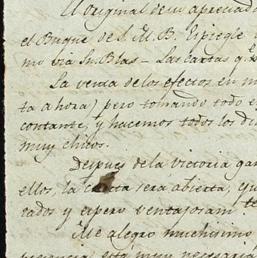 El original de su apreciad
el Buque de S. M. B. Espiegle
mo via Sn. Blas — Las cartas q.e
La venta de los efectos en m
ta ahora) pero tomando todo e
contante, y hacemos todos los di
muy chicos.
Despues de la victoria gan
ellos, la costa sera abierta, qu
tados y espero ventajosam.te
Me alegro muchisimo
esta muy necesaria